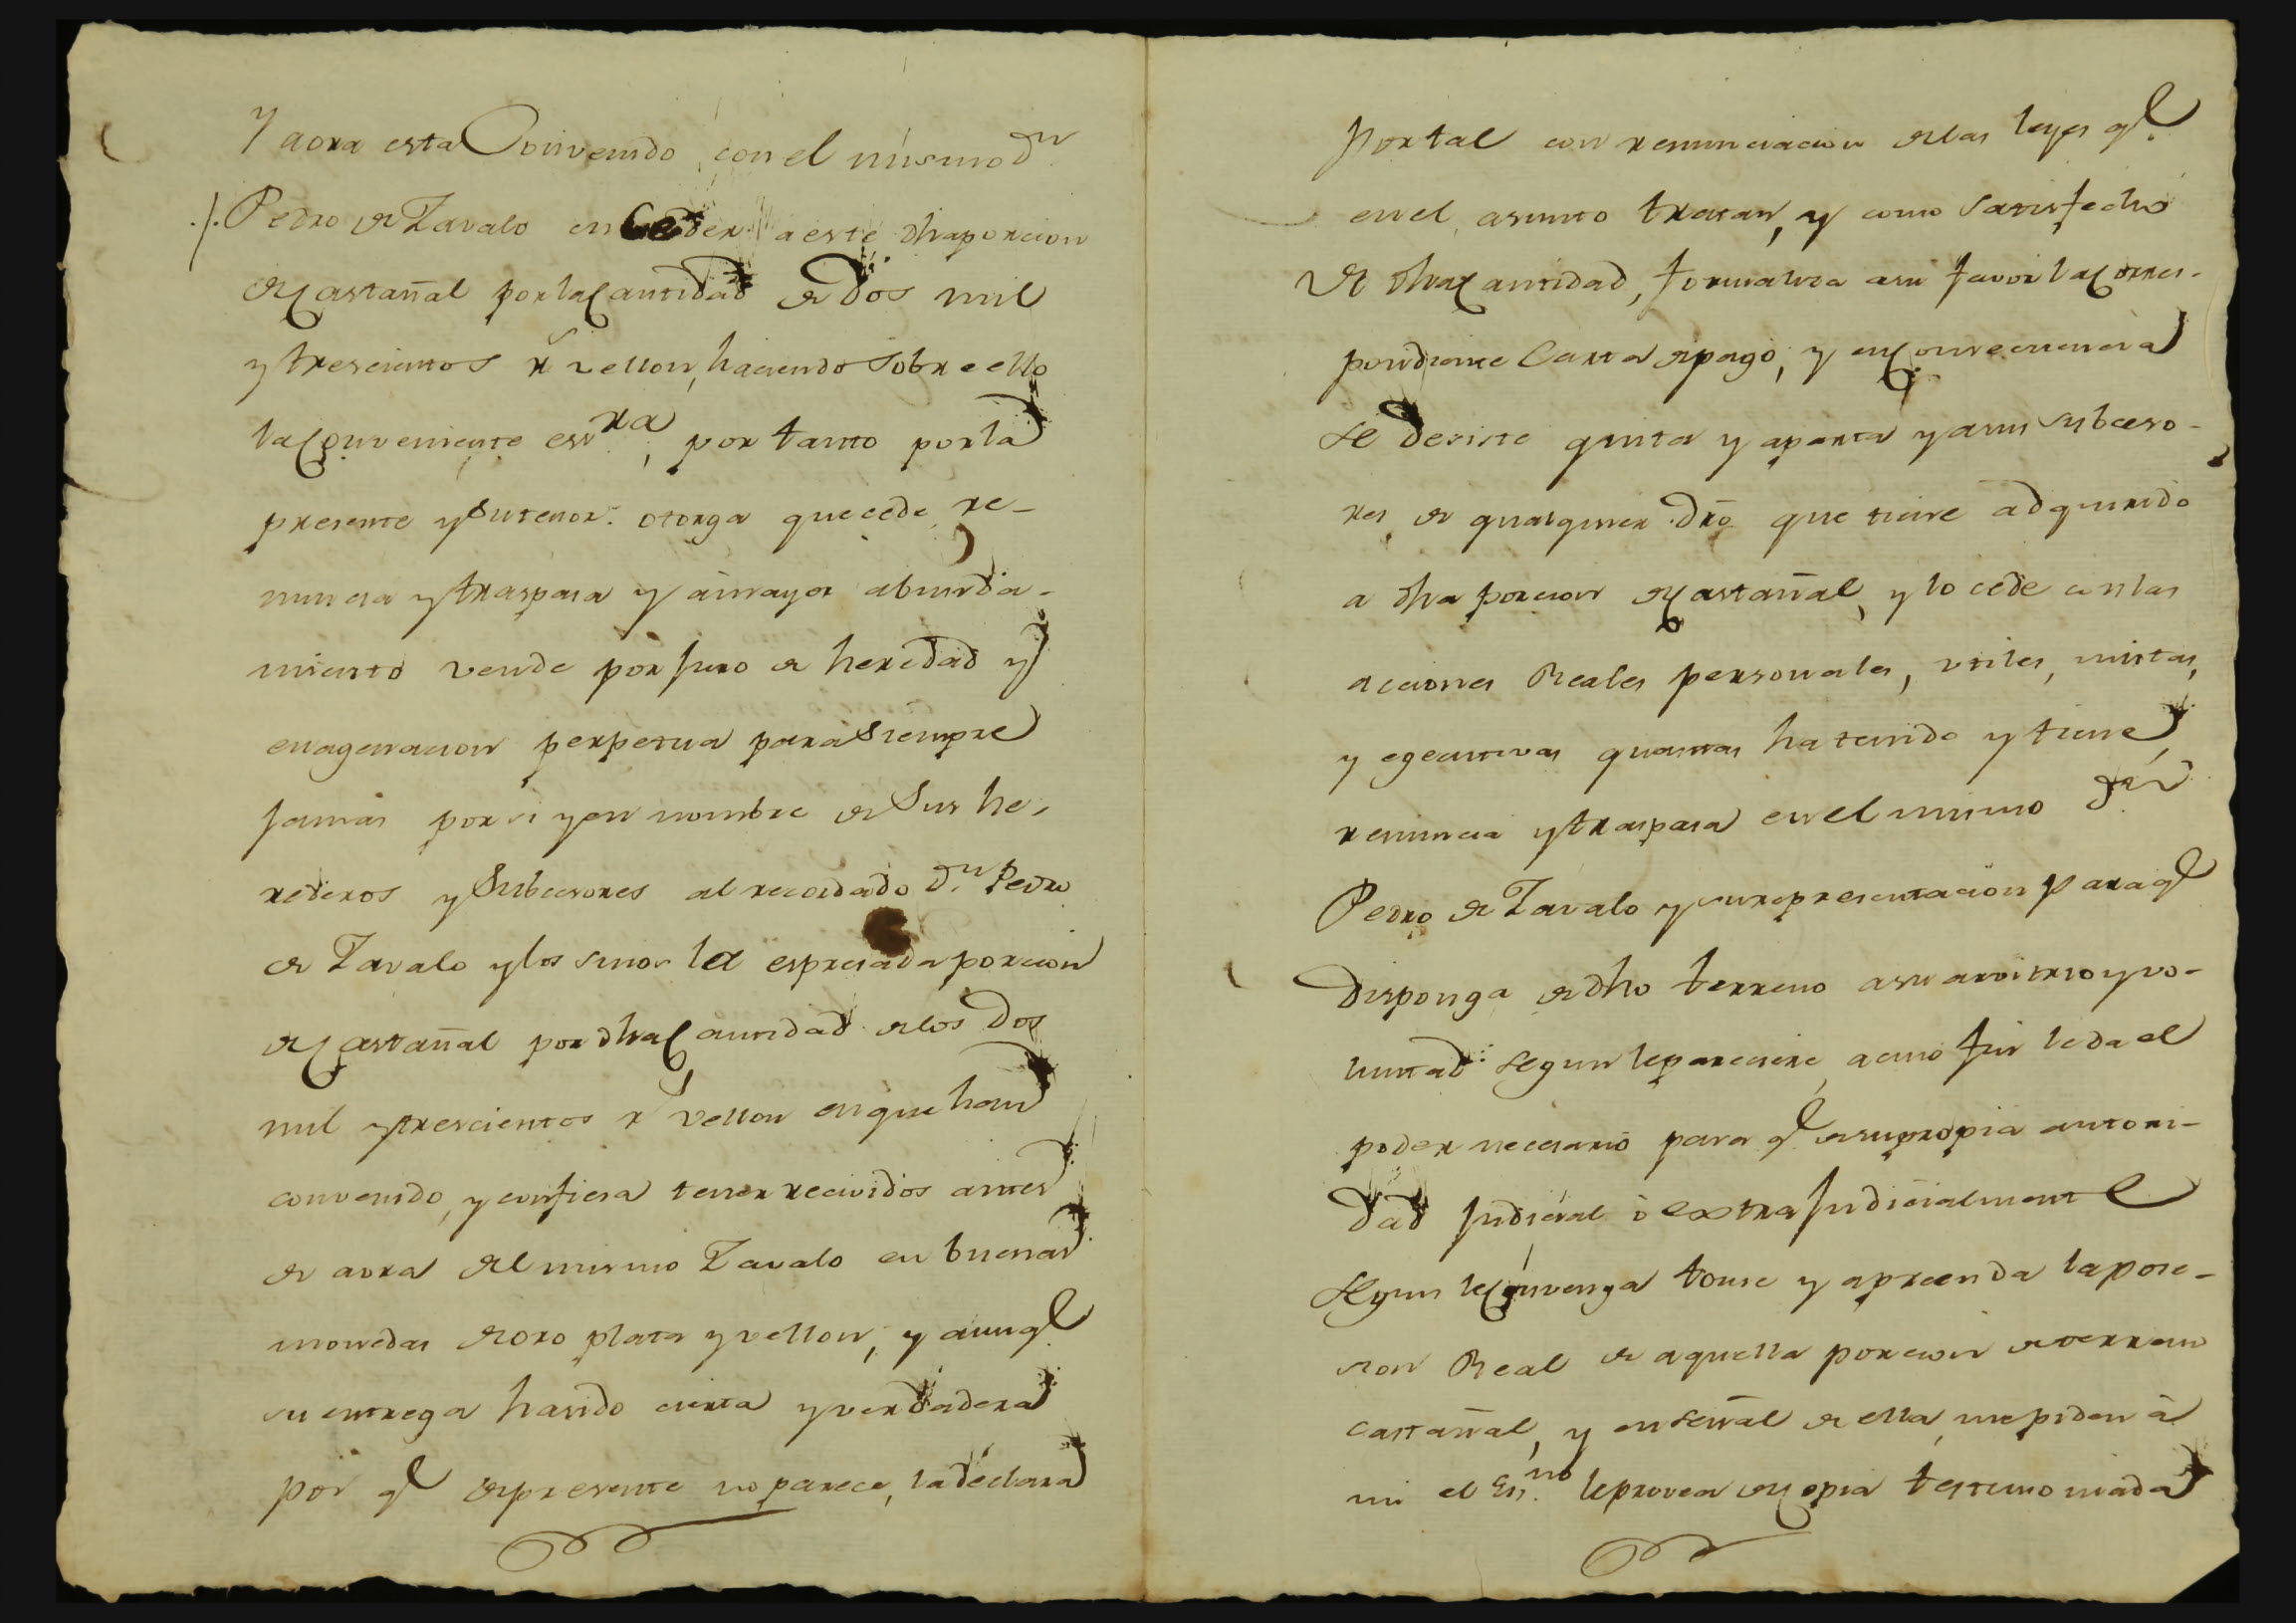 Y aora esta Convenido con el mismo dn
Pedro de Zavalo en Ceder a este dha porcion
de Castañal por la Cantidad de dos mil
y trescientos rs vellon, haciendo sobre ello
la Conveniente essra, por tanto por la
presente y su tenor. otorga que cede re-
nuncia y traspasa y à mayor abunda-
miento vende por juro de heredad y
enagenacion perpetua para siempre
jamas por si y en nombre de sus he,
rederos y Subcesores al recordado dn Pedro
de Zavalo y los suios la espresada porcion
de Castañal por dha Cantidad de los dos
mil y trescientos rs vellon en que han
convenido, y confiesa tener recividos antes
de aora del mismo Zavalo en buenas
monedas de oro plata y vellon, y aunqe
su entrega ha sido cierta y verdadera
por qe de presente no parece, la declara
por tal con renunciacion de las leyes qe
en el asunto tratan, y como satisfecho
de dha Cantidad, formaliza a su favor la Corres-
pondiente Carta de pago, y en Consecuencia
se desiste quita y aparta y a sus subceso-
res de qualquier dro que tiene adquirido
a dha porcion de Castañal, y lo cede con las
acciones Reales personales, utiles, mistas,
y egecutivas quantas ha tenido y tiene,
renuncia y traspasa en el mismo dn
Pedro de Zavalo y su representacion para qe
disponga de dho terreno a su arvitrio y vo-
luntad segun le pareciere, a cuio fin le da el
poder necesario para qe de su propia autori-
dad judicial ò extrajudicialmente
segun le Convenga tome y apreenda la pose-
sion Real de aquella porcion de terreno
castañal, y en señal de ella, me piden à
mi el Esno le provea de Copia testimoniada